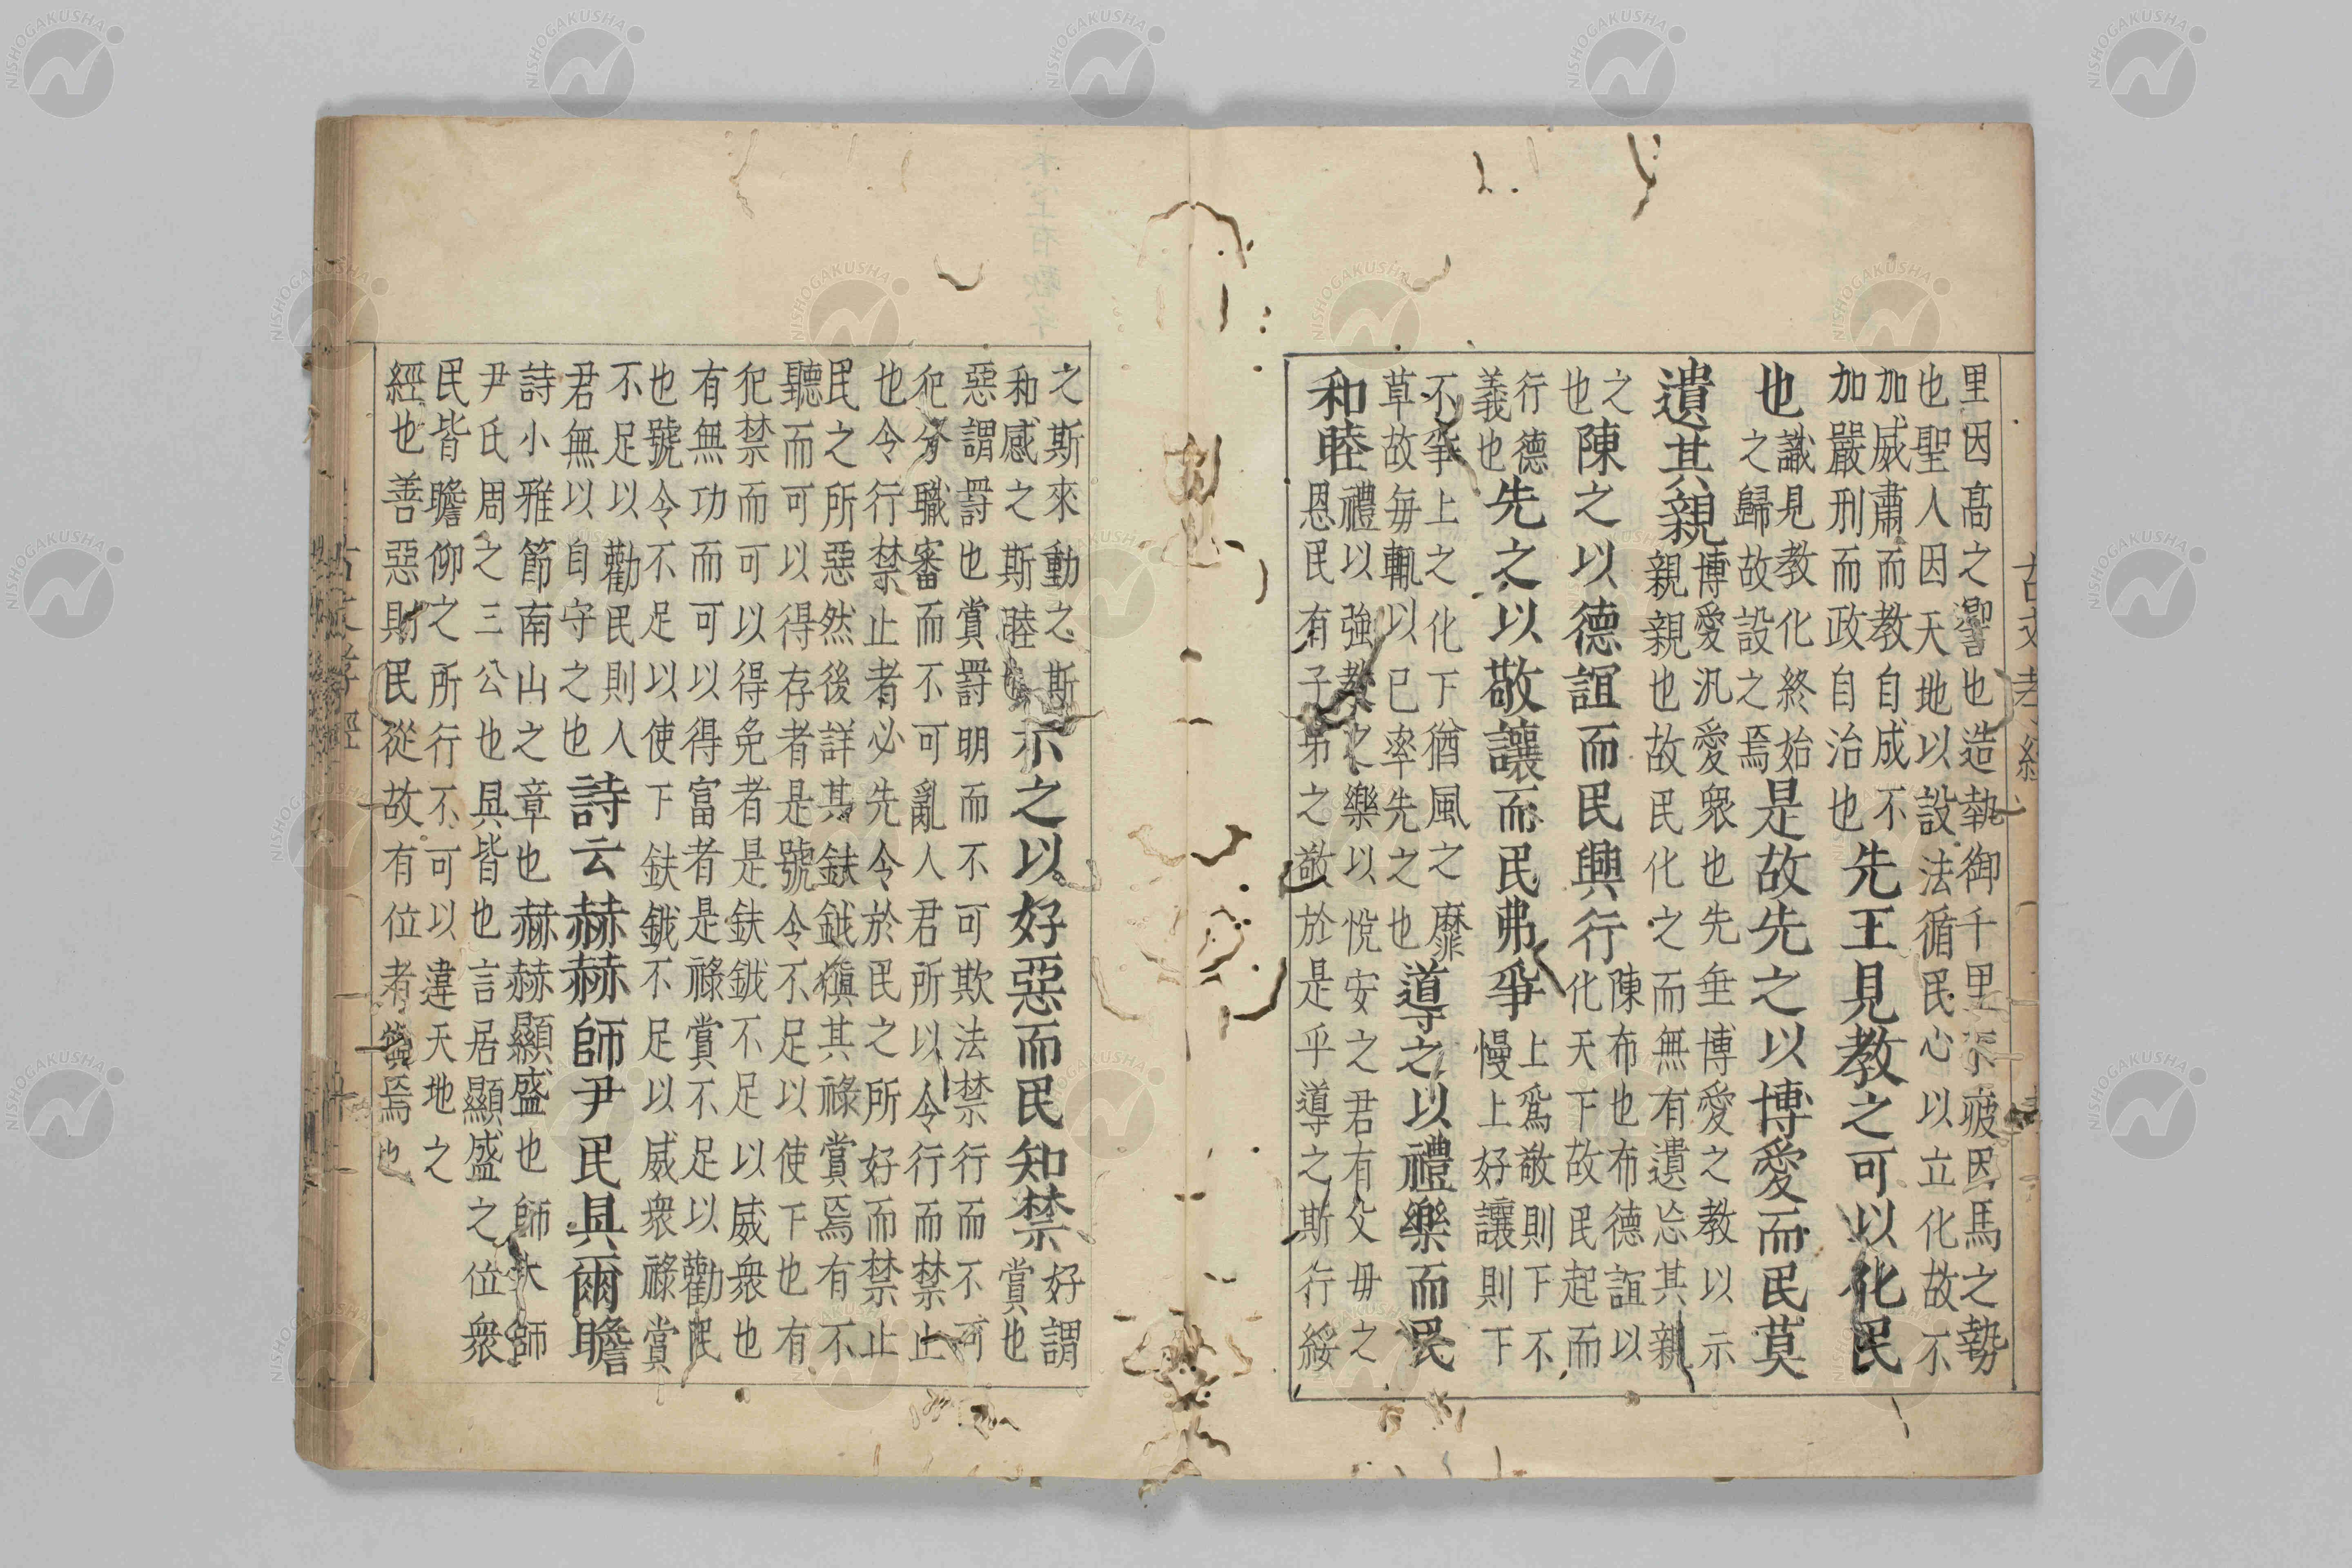 里因高之響也造執御千里不疲因馬之勢
也聖人因天地以設法循民心以立化故不
加威肅而教自成不
加嚴刑而政自治也
先王見教之可以化民
也
識見教化終始
之歸故設之焉
是故先之以博愛而民莫
遺其親
博愛汎愛衆也先垂博愛之教以示
親親也故民化之而無有遺忘其親
之
也
陳之以德誼而民興行
陳布也布德誼以
化天下故民起而
行德
義也
先之以敬讓而民弗爭
上爲敬則下不
慢上好讓則下
不爭上之化下猶風之靡
草故每輒以己率先之也
導之以禮樂而民
和睦
禮以強教之樂以悅安之君有父母之
恩民有子弟之敬於是乎導之斯行綏
之斯來動之斯
和感之斯睦也
示之以好惡而民知禁
好謂
賞也
惡謂罸也賞罸明而不可欺法禁行而不可
犯分職審而不可亂人君所以令行而禁止
也令行禁止者必先令於民之所好而禁止
民之所惡然後詳其鈇鉞慎其祿賞焉有不
聽而可以得存者是號令不足以使下也有
犯禁而可以得免者是鈇鉞不足以威衆也
有無功而可以得富者是祿賞不足以勸民
也號令不足以使下鈇鉞不足以威衆祿賞
不足以勸民則人
君無以自守之也
詩云赫赫師尹民具爾瞻
詩小雅節南山之章也赫赫顯盛也師大師
尹氏周之三公也具皆也言居顯盛之位衆
民皆瞻仰之所行不可以違天地之
經也善惡則民從故有位者慎焉也
古文孝經